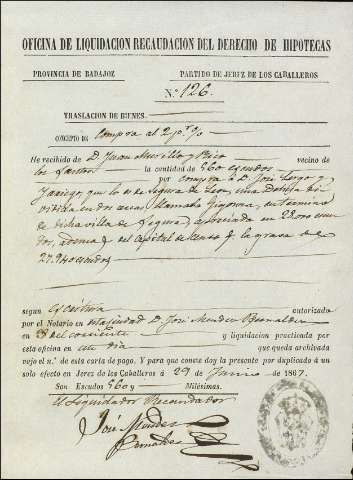 OFICINA DE LIQUIDACION RECAUDACION DEL DERECHO DE HIPOTECAS
PROVINCIA DE BADAJOZ PARTIDO DE JEREZ DE LOS CABALLEROS
N.º 126.
TRASLACION DE BIENES.
CONCEPTO DE Compra al 2 p.r %
He recibido de D. Juan Murillo y Rico vecino de
los Santos la cantidad de 560 escudos
por compra a D. José
que lo es de Segura de Leon, una Dehesa
en dos llamada en término
de dicha villa de Segura, apreciada en 28.000
del Capital de censo q. la grava de
27.940 escudos
segun escritura autorizado
por el Notario en esta ciudad D. José Mendez Bernaldez
en 28 del corriente y liquidacion practicada por
esta oficina en este dia que queda archivada
vajo el n.º de esta carta de pago. Y para que conste doy la presente por duplicado á un
solo efecto en Jerez de los Caballeros á 29 de Junio de 1867.
Son Escudos 560 y Milésimas.
El Liquidador Recaudador
José Mendez
Bernaldez